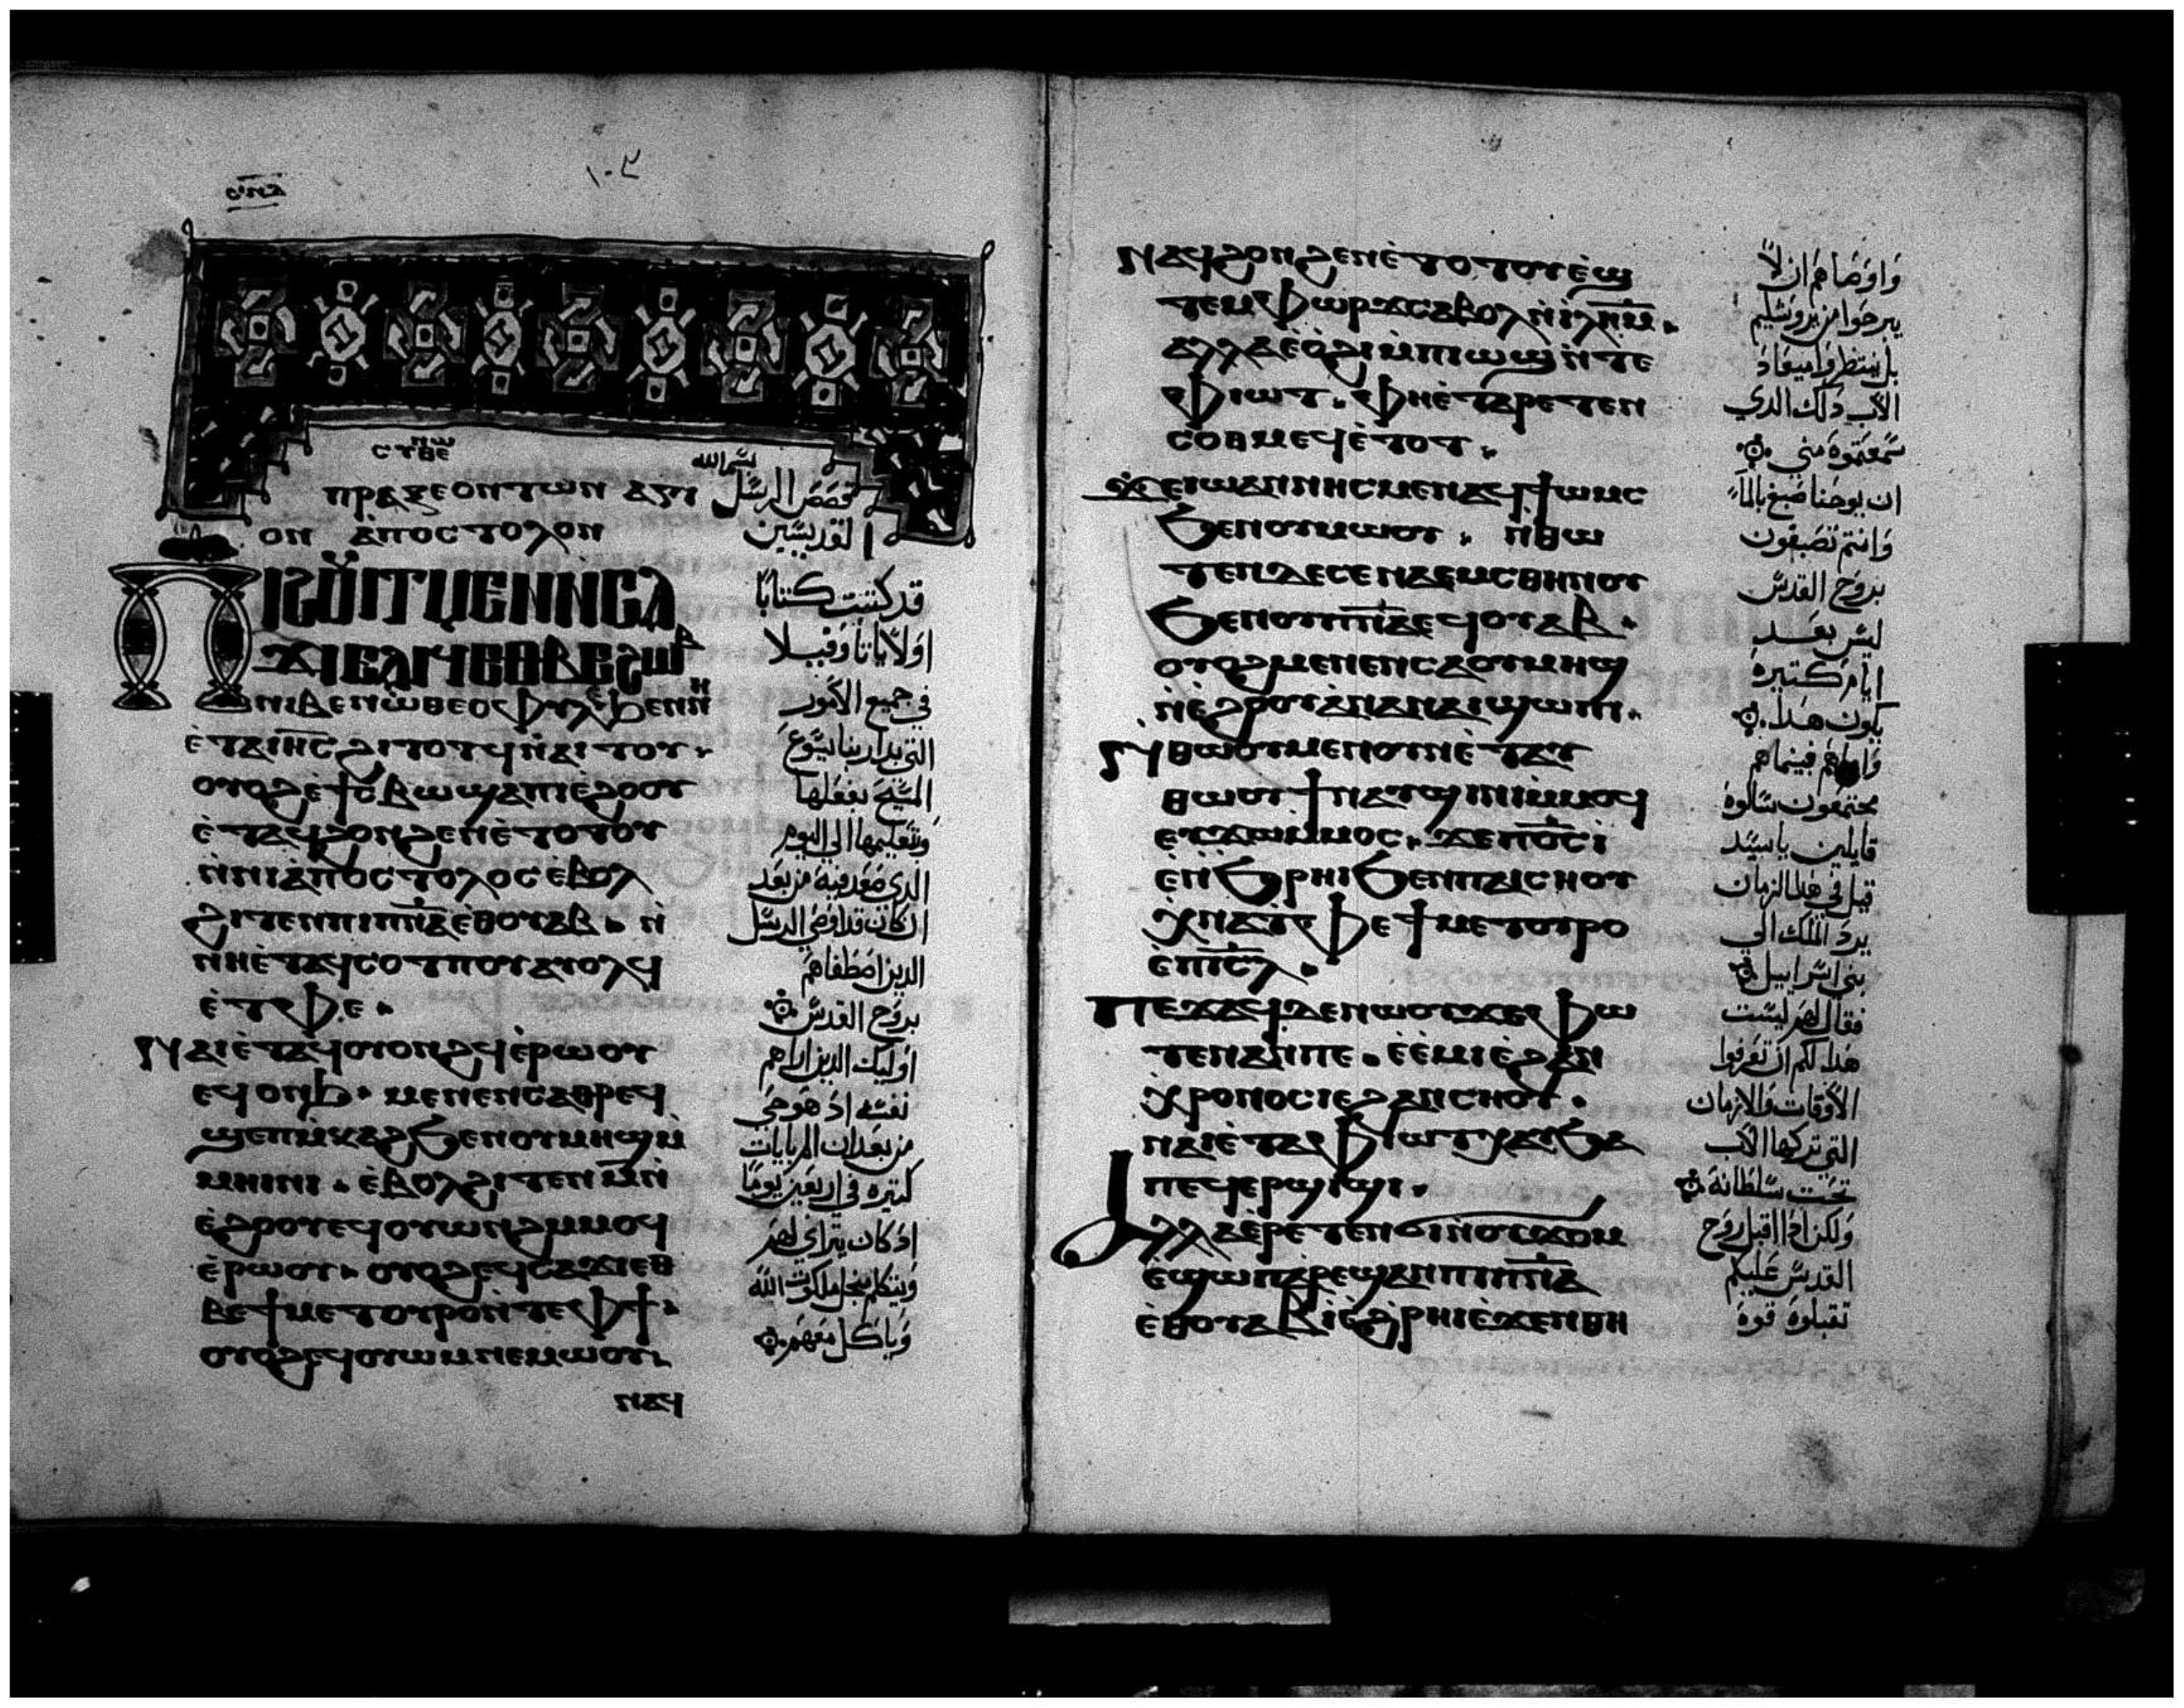 ١٠٢
ⲥⲩⲛ ⲑⲉⲱ
بسم الله
ⲡⲣⲁⲝⲉⲟⲛ ⲧⲱⲛ ⲁⲅⲓ
قصص الرسل
ⲟⲛ ⲁ̀ⲡⲟⲥⲧⲟⲗⲟⲛ
القديسين
ⲡⲓϩⲟⲩⲓⲧ ⲙⲉⲛ ⲛ̀ⲥⲁ
ϫⲓ ⲉⲁⲓϥ ⲉⲑⲃⲉ ϩⲱⲃ
ⲛⲓⲃⲉⲛ ⲱ̀ ⲑⲉⲟⲫⲩⲗⲉ ϧⲉⲛ ⲛⲏ
ⲉ̀ⲧⲁ ⲓⲏ̅ⲥ̅ ϩⲓⲧⲟⲧϥ ⲛ̀ⲁⲓⲧⲟⲩ
ⲟⲩⲟϩ ⲉ̀ϯⲥⲃⲱ ϣⲁ ⲡⲓⲉ̀ϩⲟⲟⲩ
ⲉ̀ⲧⲁϥϩⲟⲛϩⲉⲛ ⲉ̀ⲧⲟⲧⲟⲩ
ⲛ̀ⲛⲓⲁ̀ⲡⲟⲥⲧⲟⲗⲟⲥ ⲉⲃⲟⲗ
ϩⲓⲧⲉⲛ ⲡⲓⲡ̅ⲛ̅ⲁ̅ ⲉ̀ⲑⲟⲩⲁⲃ ⲛ̀
ⲛⲏⲉ̀ⲧⲁϥⲥⲟⲧⲡⲟⲩ ⲁⲩⲟⲗϥ
ⲉ̀ⲧⲫⲉ
ⲛⲁⲓ ⲉ̀ⲧⲁϥⲟⲩⲟⲛϩϥ ⲉ̀ⲣⲱⲟⲩ
ⲉϥⲟⲛϧ ⲙⲉⲛⲉⲛⲥⲁ ⲑⲣⲉϥ
ϣⲉⲡ ⲙ̀ⲕⲁϩ ϧⲉⲛ ⲟⲩⲙⲏϣ ⲙ̀
ⲙⲏⲓⲛⲓ ⲉ̀ⲃⲟⲗ ϩⲓⲧⲉⲛ ⲙ̅ ⲛ̀
ⲉ̀ϩⲟⲟⲩ ⲉϥⲟⲩⲱⲛϩ ⲙ̀ⲙⲟϥ
ⲉ̀ⲣⲱⲟⲩ ⲟⲩⲟϩ ⲉϥⲥⲁϫⲓ ⲉⲑ
ⲃⲉ ϯⲙⲉⲧⲟⲩⲣⲟ ⲛ̀ⲧⲉ ⲫϯ
ⲟⲩⲟϩ ⲉϥⲟⲩⲱⲙ ⲛⲉⲙⲱⲟⲩ
ⲛⲁϥ
قد كتبت كتابا
اولا يا تاوفيلا
في جميع الامور
التي بدا ربنا يسوع
المسيح بفعلها
وتعليمها الي اليوم
الدي صعد فيه من بعد
ان كان قد اوصي الرسل
الدين اصطفاهم
بروح القدس
اوليك الدين اراهم
نفسه اد هو حي
من بعد ان الم بايات
كتيره في اربعين يوما
اد كان يتراي لهم
ويتكلم من اجل ملكوت الله
وياكل معهم
ⲛⲁϥϩⲟⲛϩⲉⲛ ⲉ̀ⲧⲟⲧⲟⲩ ⲉ̀ϣ
ⲧⲉⲙⲫⲱⲣϫ ⲥⲁⲃⲟⲗ ⲛ̀ⲓ̅ⲗ̅ⲏ̅ⲙ̅
ⲁⲗⲗⲁ ⲉ̀ⲟ̀ϩⲓ ⲙ̀ⲡⲓⲱϣ ⲛ̀ⲧⲉ
ⲫⲓⲱⲧ ⲫⲏⲉ̀ⲧⲁⲣⲉⲧⲉⲛ
ⲥⲟⲑⲙⲉϥ ⲉ̀ⲧⲟⲧ
ϫⲉ ⲓⲱⲁⲛⲛⲏⲥ ⲙⲉⲛ ⲁϥϯⲱⲙⲥ
ϧⲉⲛ ⲟⲩⲙⲱⲟⲩ ⲛ̀ⲑⲱ
ⲧⲉⲛ ⲇⲉ ⲥⲉⲛⲁⲉⲙⲥ ⲑⲏⲛⲟⲩ
ϧⲉⲛ ⲟⲩⲡ̅ⲛ̅ⲁ̅ ⲉϥⲟⲩⲁⲃ
ⲟⲩⲟϩ ⲙⲉⲛⲉⲛⲥⲁ ⲟⲩⲙⲏϣ
ⲛ̀ⲉ̀ϩⲟⲟⲩ ⲁⲛ ⲁⲛⲁⲓ ϣⲱⲡⲓ
ⲛ̀ⲑⲱⲟⲩ ⲙⲉⲛ ⲟⲩⲛ ⲉ̀ⲧⲁⲩ
ⲑⲱⲟⲩϯ ⲛⲁⲩϣⲓⲛⲓ ⲙ̀ⲙⲟϥ
ⲉⲩϫⲱ ⲙ̀ⲙⲟⲥ ϫⲉ ⲡϭⲟⲓⲥ
ⲉ̀ⲛ ϧ̀ⲣⲏⲓ ϧⲉⲛ ⲡⲁⲓⲥⲏⲟⲩ
ⲭⲛⲁⲧⲫⲉ ϯⲙⲉⲧⲟⲩⲣⲟ
ⲉ̀ⲡⲓ̅ⲥ̅ⲗ̅
ⲡⲉϫⲁϥ ⲇⲉ ⲛⲱⲟⲩ ϫⲉ ⲫⲱ
ⲧⲉⲛ ⲁⲛ ⲡⲉ ⲉ̀ⲉ̀ⲙⲓ ⲉ̀ϩⲁⲛ
ⲭⲣⲟⲛⲟⲥ ⲓⲉ ϩⲁⲛⲥⲏⲟⲩ
ⲛⲁⲓ ⲉ̀ⲧⲁ ⲫⲓⲱⲧ ⲭⲁⲩ ϧⲁ
ⲡⲉϥⲉⲣϣⲓϣⲓ
ⲁⲗⲗⲁ ⲉ̀ⲣⲉⲧⲉⲛϭⲓ ⲛ̀ⲟⲩϫⲟⲙ
ⲉ̀ϣⲱⲡ ⲁⲣⲉϣⲁⲛ ⲡⲓⲡ̅ⲛ̅ⲁ̅
ⲉ̀ⲑⲟⲩⲁⲃ ⲓ̀ ⲉ̀ϩ̀ⲣⲏⲓ ⲉ̀ϫⲉⲛ ⲑⲏ
واوصاهم ان لا
يبرحوا من يروشليم
بل ينتظروا ميعاد
الاب دلك الدي
سمعتموه مني
ان يوحنا صبغ بالماء
وانتم تصبغون
بروح القدس
ليس بعد
ايام كتيره
يكون هدا
واما هم فبينما هم
مجتمعون سالوه
قايلين ياسيد
قبل في هدا الزمان
يرد الملك الي
بني اسراييل
فقال لهم ليست
هدا لكم ان تعرفوا
الاوقات والازمان
التي تركها الاب
تحت سلطانه
ولكن ادا اقبل روح
القدس عليكم
تقبلوه قوه